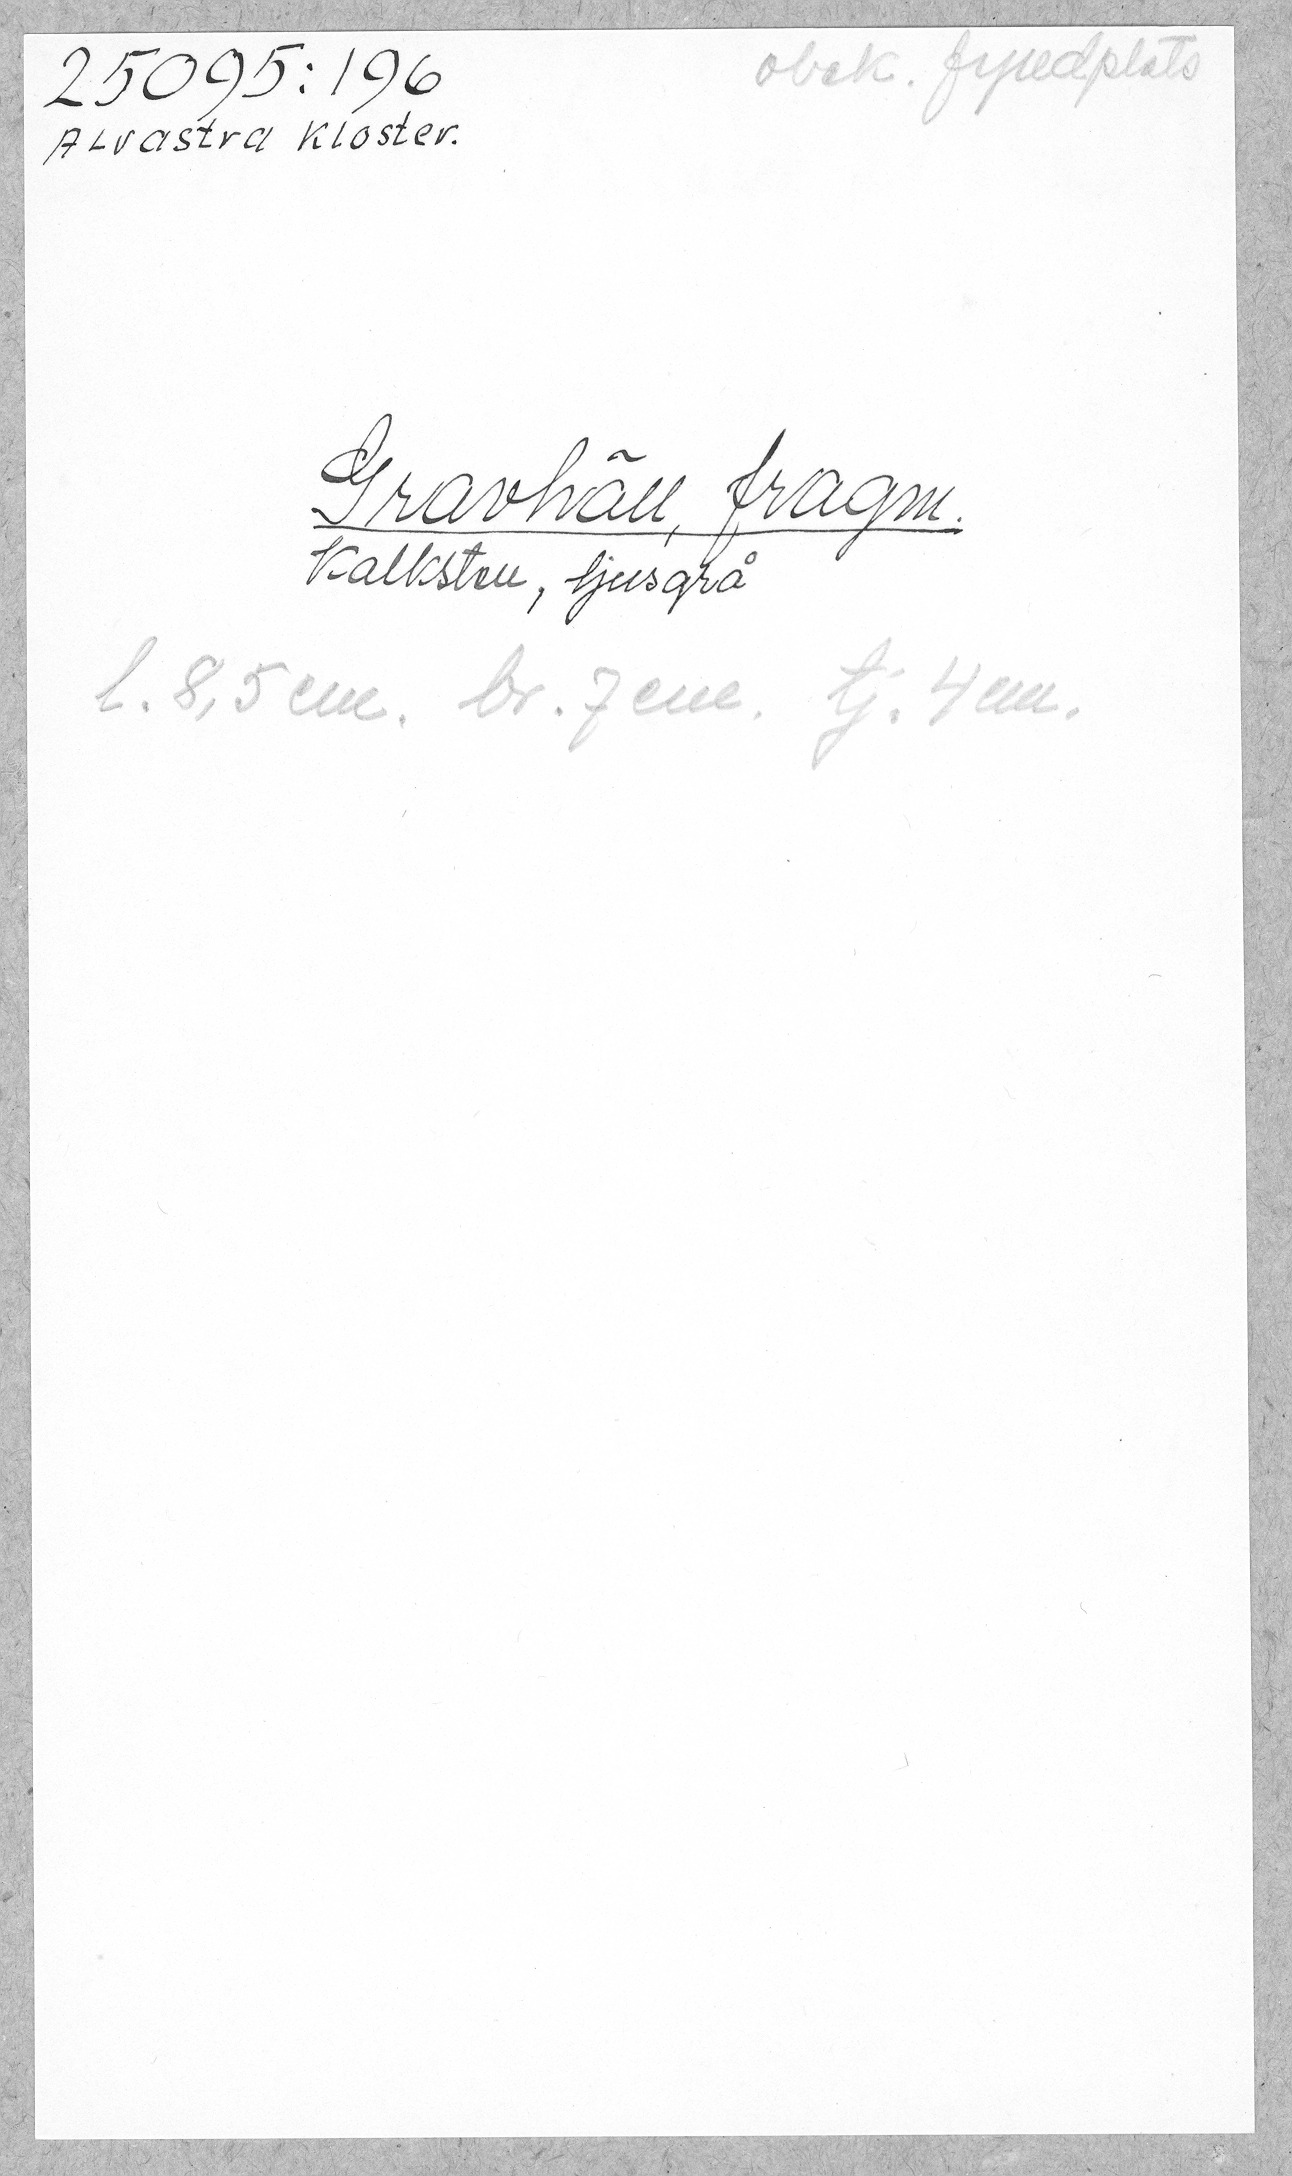 25095:196
obek. fyndplats
Alvastra Kloster.
Gravhäll, fragm.
Kalksten, ljusgrå
l. 8,5 cm. br. 7 cm. tj. 4 cm.